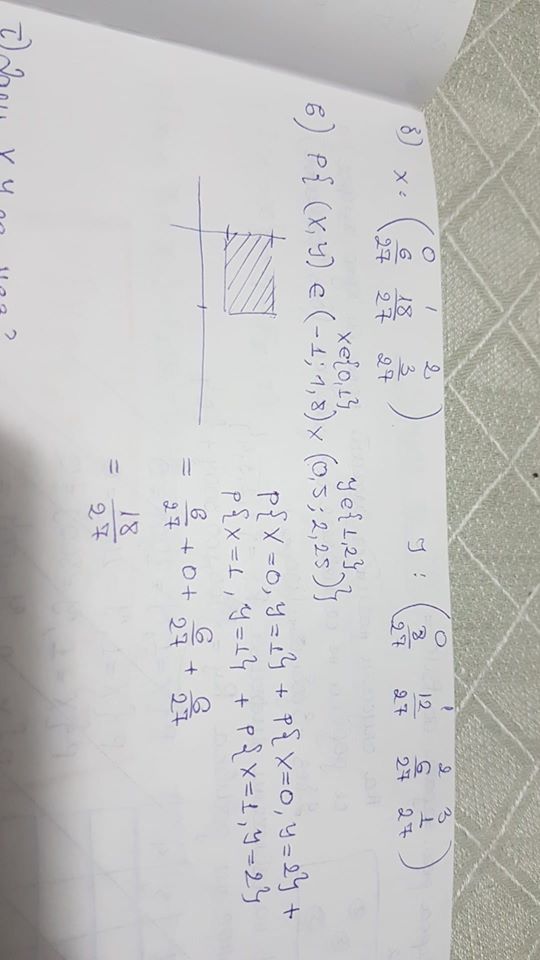 б) X: ( 0 1 2 ; 6/27 18/27 3/27 ) y: ( 0 1 2 3 ; 8/27 12/27 6/27 1/27 )
x∈{0,1} y∈{1,2}
в) P{(X,Y) ∈ (-1;1,8)×(0,5;2,25)}
P{X=0,Y=1} + P{X=0,Y=2} +
P{X=1,Y=1} + P{X=1,Y=2}
= 6/27 + 0 + 6/27 + 6/27
= 18/27